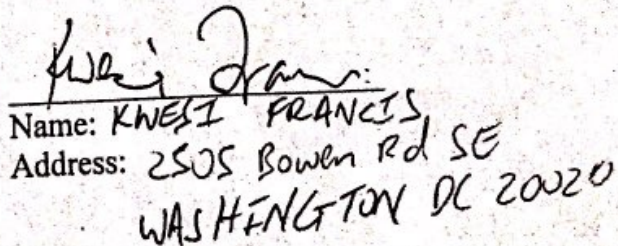 Kwesi Francis
Name: KWESI FRANCIS
Address: 2505 Bowen Rd SE
WASHINGTON DC 20020